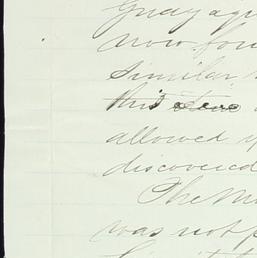 Guayaqu
now fou
similar
this
allowed
discovered
The
was not p